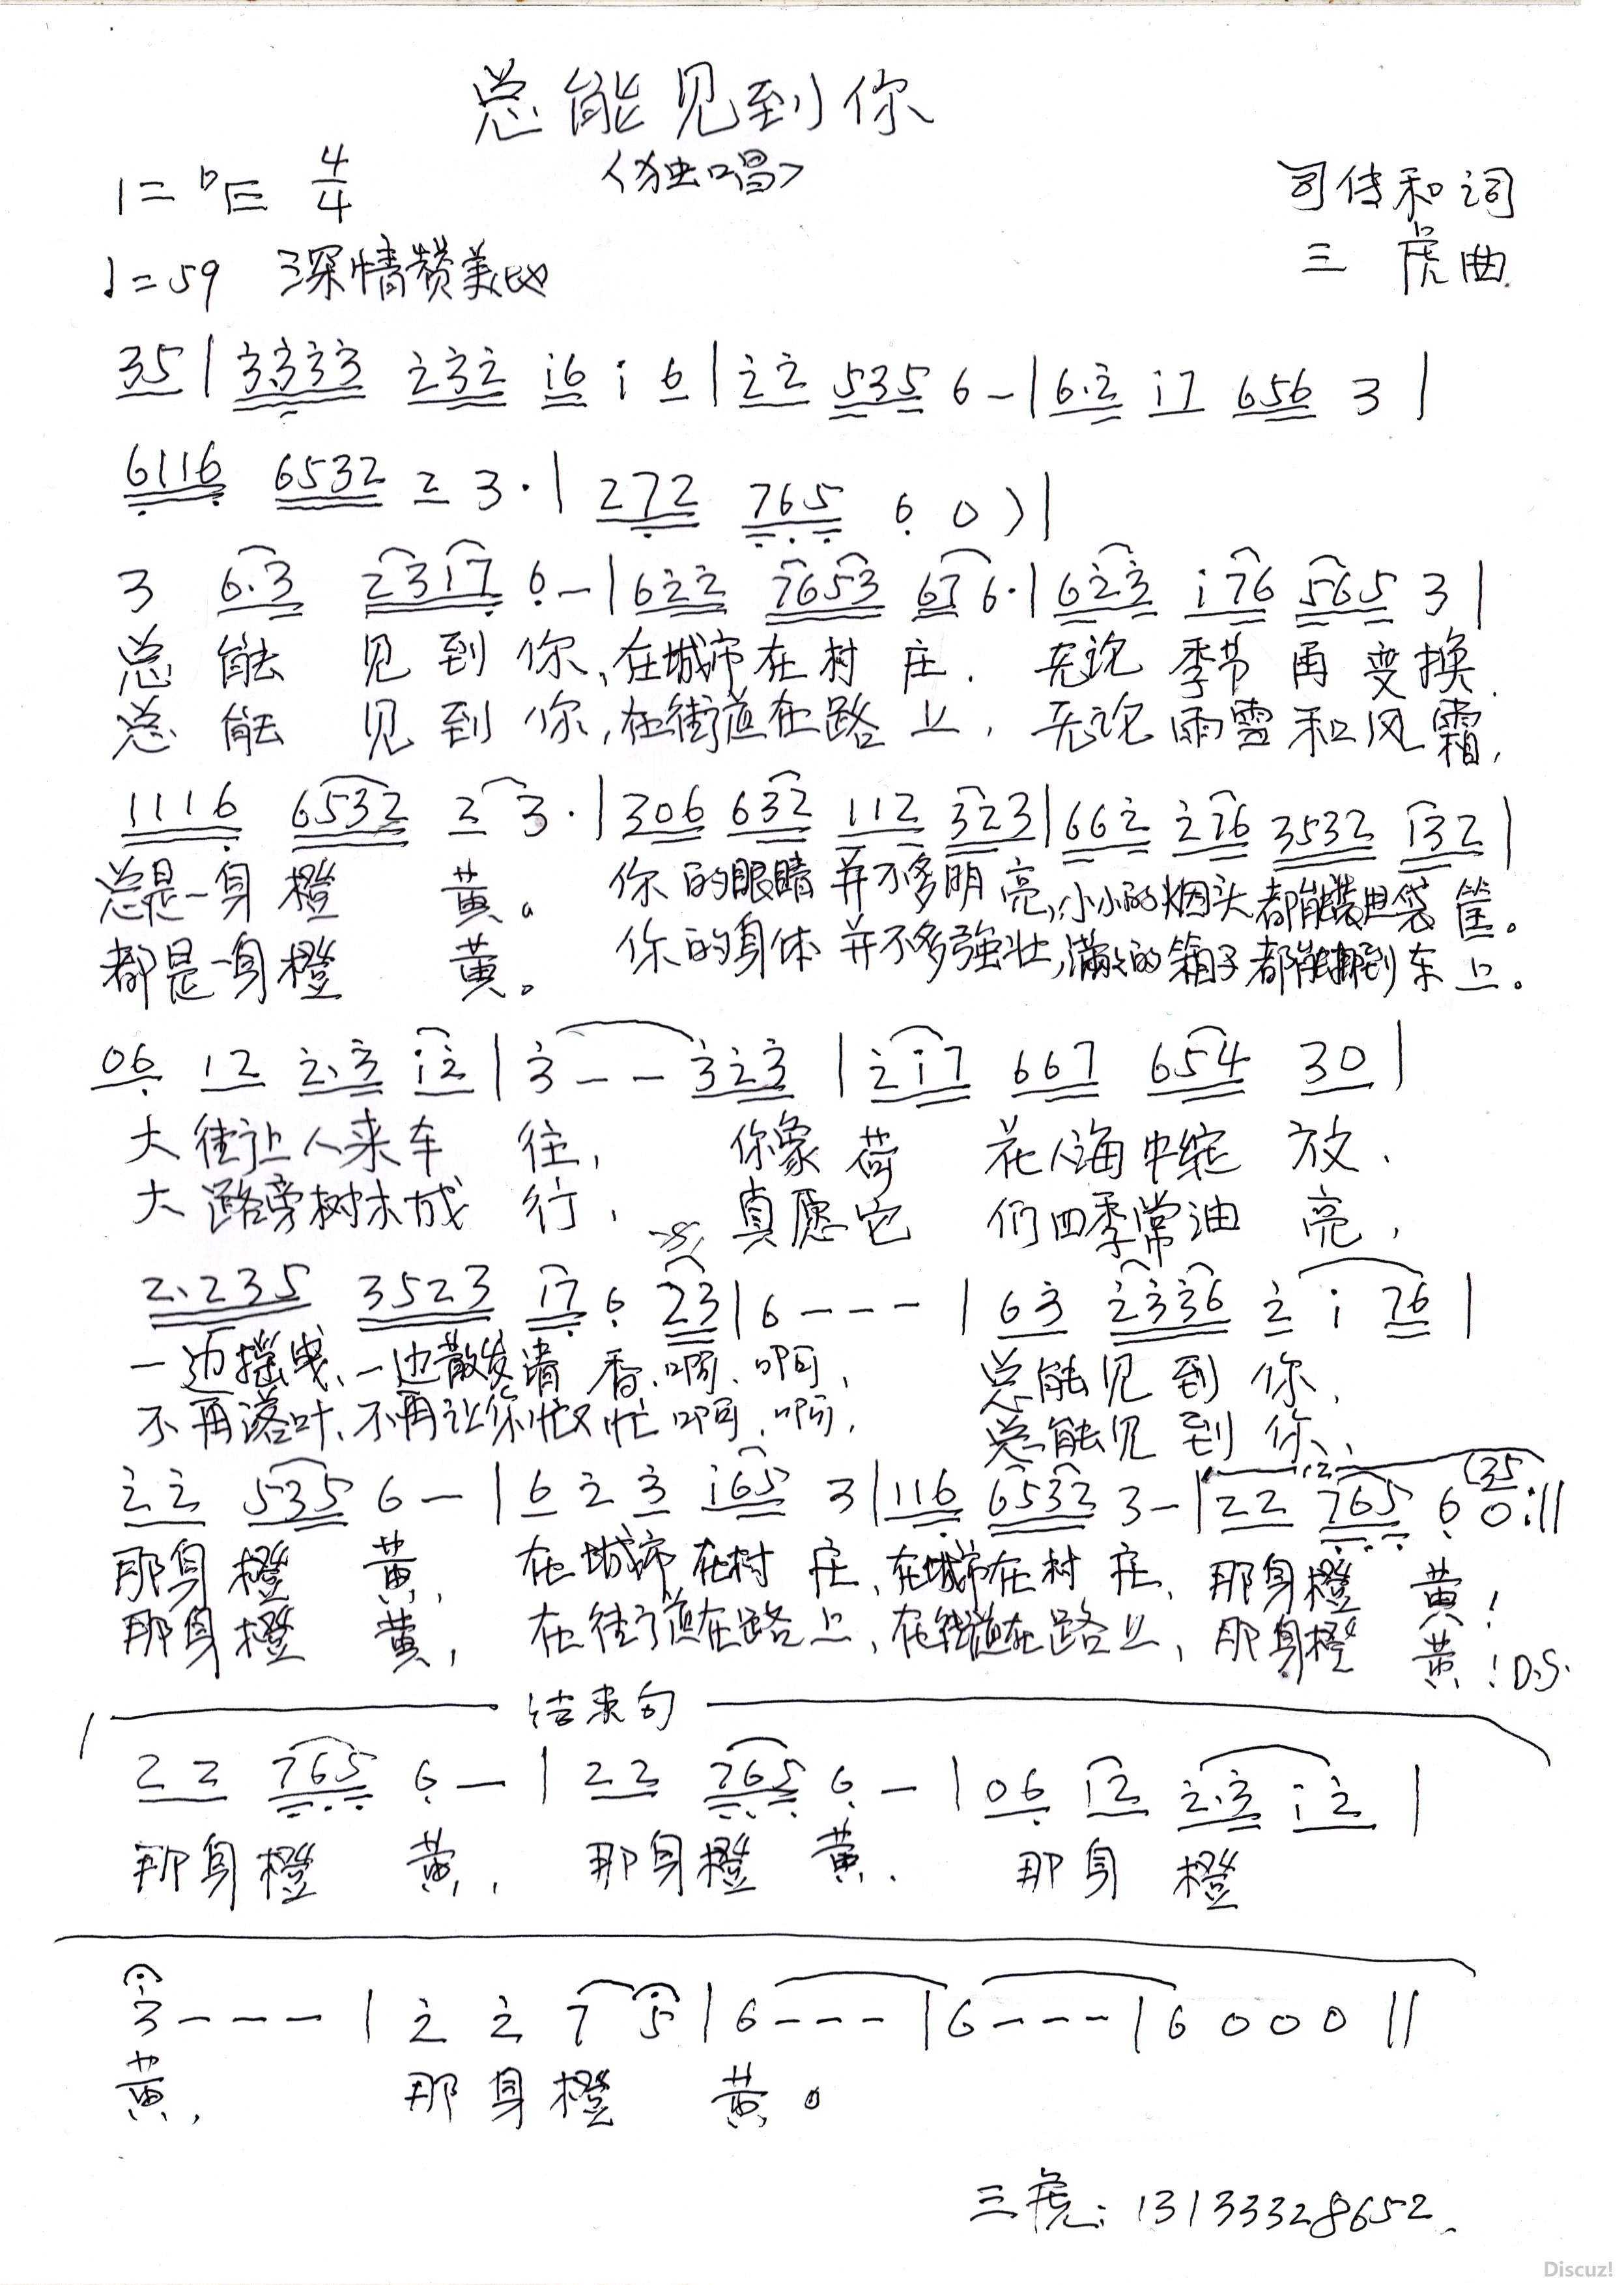 总能见到你
1=♭E 4/4 〈独唱〉 司传和词
♩=59 深情赞美地 三虎曲
35 | 3.333 232 i6 i 6 | 22 535 6 - | 6.2 i7 656 3 |
6116 6532 2 3· | 272 765 6 0 ) |
3 6.3 23i7 6 - | 622 7653 67 6· | 623 i76 565 3 |
总能见到你,在城市在村庄. 无论季节再变换.
总能见到你,在街道在路上, 无论雨雪和风霜,
1116 6532 2 3· | 306 632 112 323 | 662 2i6 3532 i32 |
总是一身橙黄。 你的眼睛并不多明亮,小小的烟头都能装进袋筐。
都是一身橙黄。 你的身体并不多强壮,满满的箱子都能搬到车上。
06 12 2.3 i2 | 3 - - 323 | 2i7 667 654 30 |
大街让人来车往, 你象荷花人海中绽放.
大路旁树木成行, 真愿它们四季常油亮,
2.235 3523 i7 6 23 | 6 - - - | 63 2336 2 i 76 |
一边摇曳、一边散发清香.啊.啊, 总能见到你,
不再落叶、不再让你忙又忙啊.啊, 总能见到你,
22 535 6 - | 6 2 3 i65 3 | 116 6532 3 - | 1.2. 22 765 6 (35 0 :||
那身橙黄, 在城市在村庄,在城市在村庄,那身橙黄!
那身橙黄, 在街道在路上,在街道在路上,那身橙黄!D.S.
结束句
22 765 6 - | 22 765 6 - | 06 i2 2.3 i2 |
那身橙黄, 那身橙黄. 那身橙
3 - - - | 2 2 7 5 | 6 - - - | 6 - - - | 6 0 0 0 ||
黄, 那身橙黄。
三虎:13133328652.
Discuz!